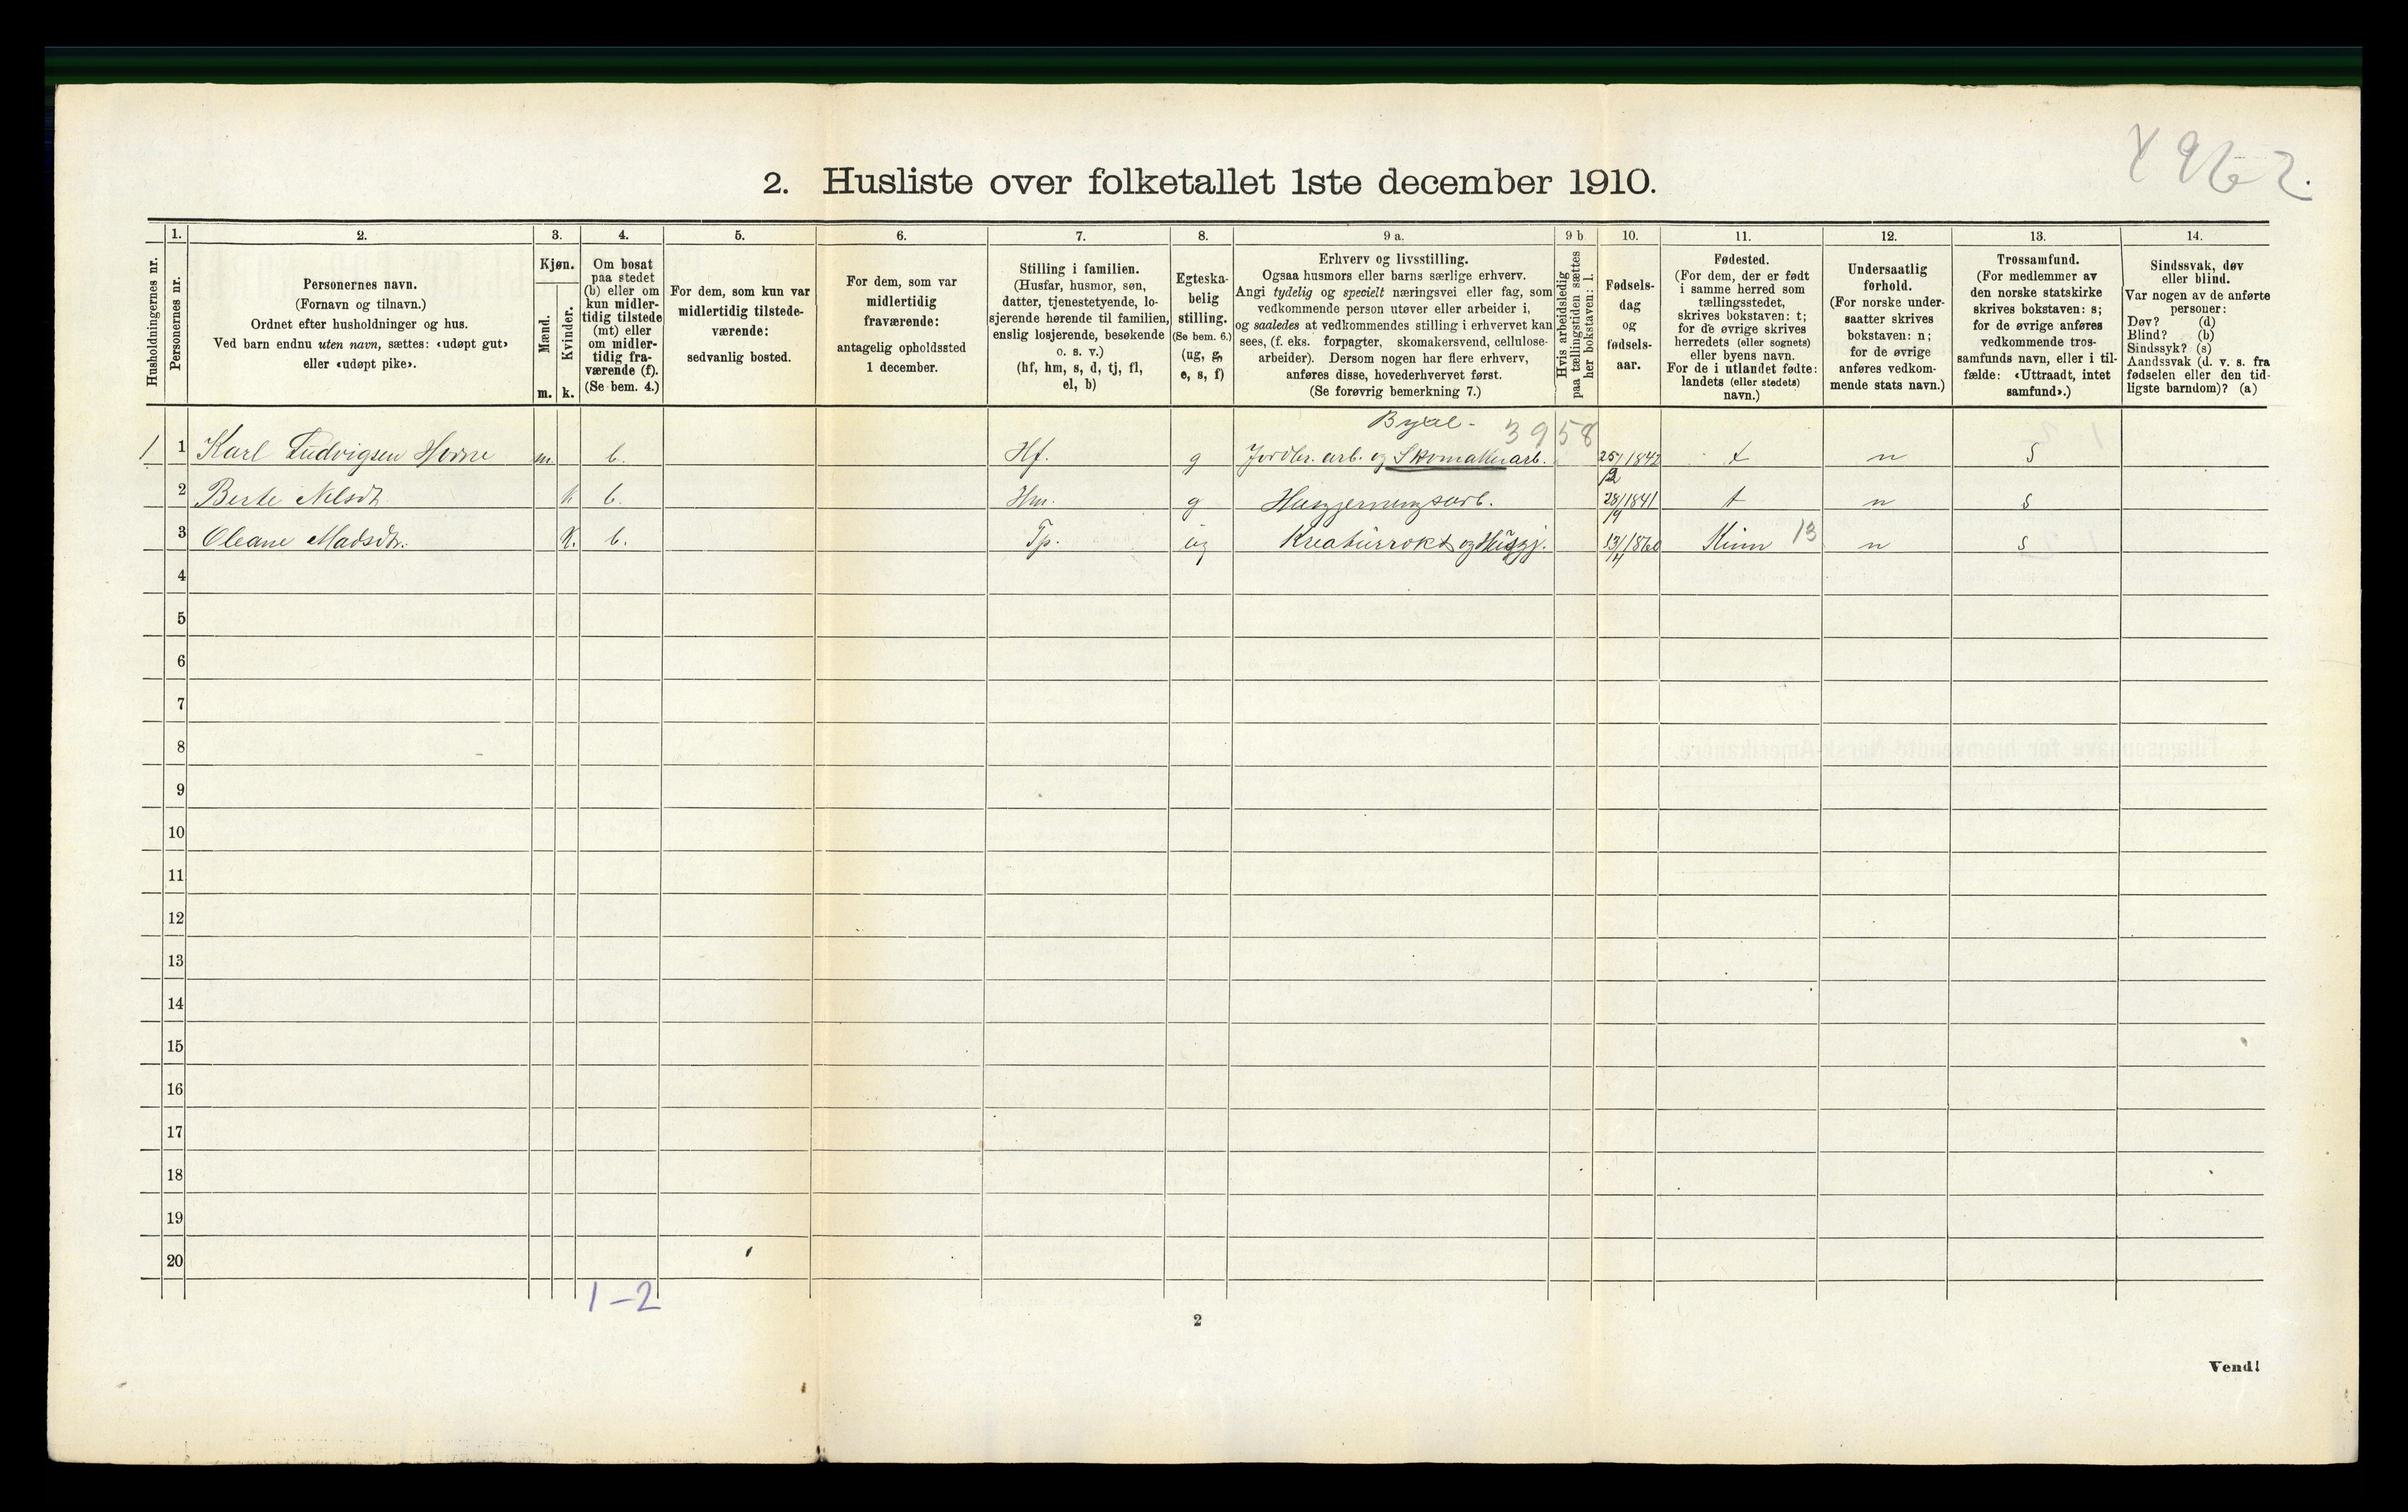 4962.
2. Husliste over folketallet 1ste december 1910.
1. 2. 3. 4. 5. 6. 7. 8. 9 a. 9 b 10. 11. 12. 13. 14.
Husholdningernes nr.
Personernes nr.
Personernes navn.
(Fornavn og tilnavn.)
Ordnet efter husholdninger og hus.
Ved barn endnu uten navn, sættes: «udøpt gut»
eller «udøpt pike».
Kjøn.
Mænd.
Kvinder.
m. k.
Om bosat
paa stedet
(b) eller om
kun midler-
tidig tilstede
(mt) eller
om midler-
tidig fra-
værende (f).
(Se bem. 4.)
For dem, som kun var
midlertidig tilstede-
værende:
sedvanlig bosted.
For dem, som var
midlertidig
fraværende:
antagelig opholdssted
1 december.
Stilling i familien.
(Husfar, husmor, søn,
datter, tjenestetyende, lo-
sjerende hørende til familien,
enslig losjerende, besøkende
o. s. v.)
(hf, hm, s, d, tj, fl,
el, b)
Egteska-
belig
stilling.
(Se bem. 6.)
(ug, g,
e, s, f)
Erhverv og livsstilling.
Ogsaa husmors eller barns særlige erhverv.
Angi tydelig og specielt næringsvei eller fag, som
vedkommende person utøver eller arbeider i,
og saaledes at vedkommendes stilling i erhvervet kan
sees, (f. eks. forpagter, skomakersvend, cellulose-
arbeider). Dersom nogen har flere erhverv,
anføres disse, hovederhvervet først.
(Se forøvrig bemerkning 7.)
Hvis arbeidsledig
paa tællingstiden sættes
her bokstaven: l.
Fødsels-
dag
og
fødsels-
aar.
Fødested.
(For dem, der er født
i samme herred som
tællingsstedet,
skrives bokstaven: t;
for de øvrige skrives
herredets (eller sognets)
eller byens navn.
For de i utlandet fødte:
landets (eller stedets)
navn.)
Undersaatlig
forhold.
(For norske under-
saatter skrives
bokstaven: n;
for de øvrige
anføres vedkom-
mende stats navn.)
Trossamfund.
(For medlemmer av
den norske statskirke
skrives bokstaven: s;
for de øvrige anføres
vedkommende tros-
samfunds navn, eller i til-
fælde: «Uttraadt, intet
samfund».)
Sindssvak, døv
eller blind.
Var nogen av de anførte
personer:
Døv? (d)
Blind? (b)
Sindssyk? (s)
Aandssvak (d. v. s. fra
fødselen eller den tid-
ligste barndom)? (a)
3958
1 1 Karl Ludvigsen Horne m. b. Hf. g Jordbr. arb. og Skomakerarb. 25/2 1842 t n s
2 Berte Nilsdt. k b. Hm. g Husgjerningsarb. 28/9 1841 t n s
3 Oleane Madsdtr. K. b. Tp. ug Kreaturrökt og Husgj. 13/4 1860 Kinn 13 n s
4
5
6
7
8
9
10
11
12
13
14
15
16
17
18
19
20
1-2
2
Vend!